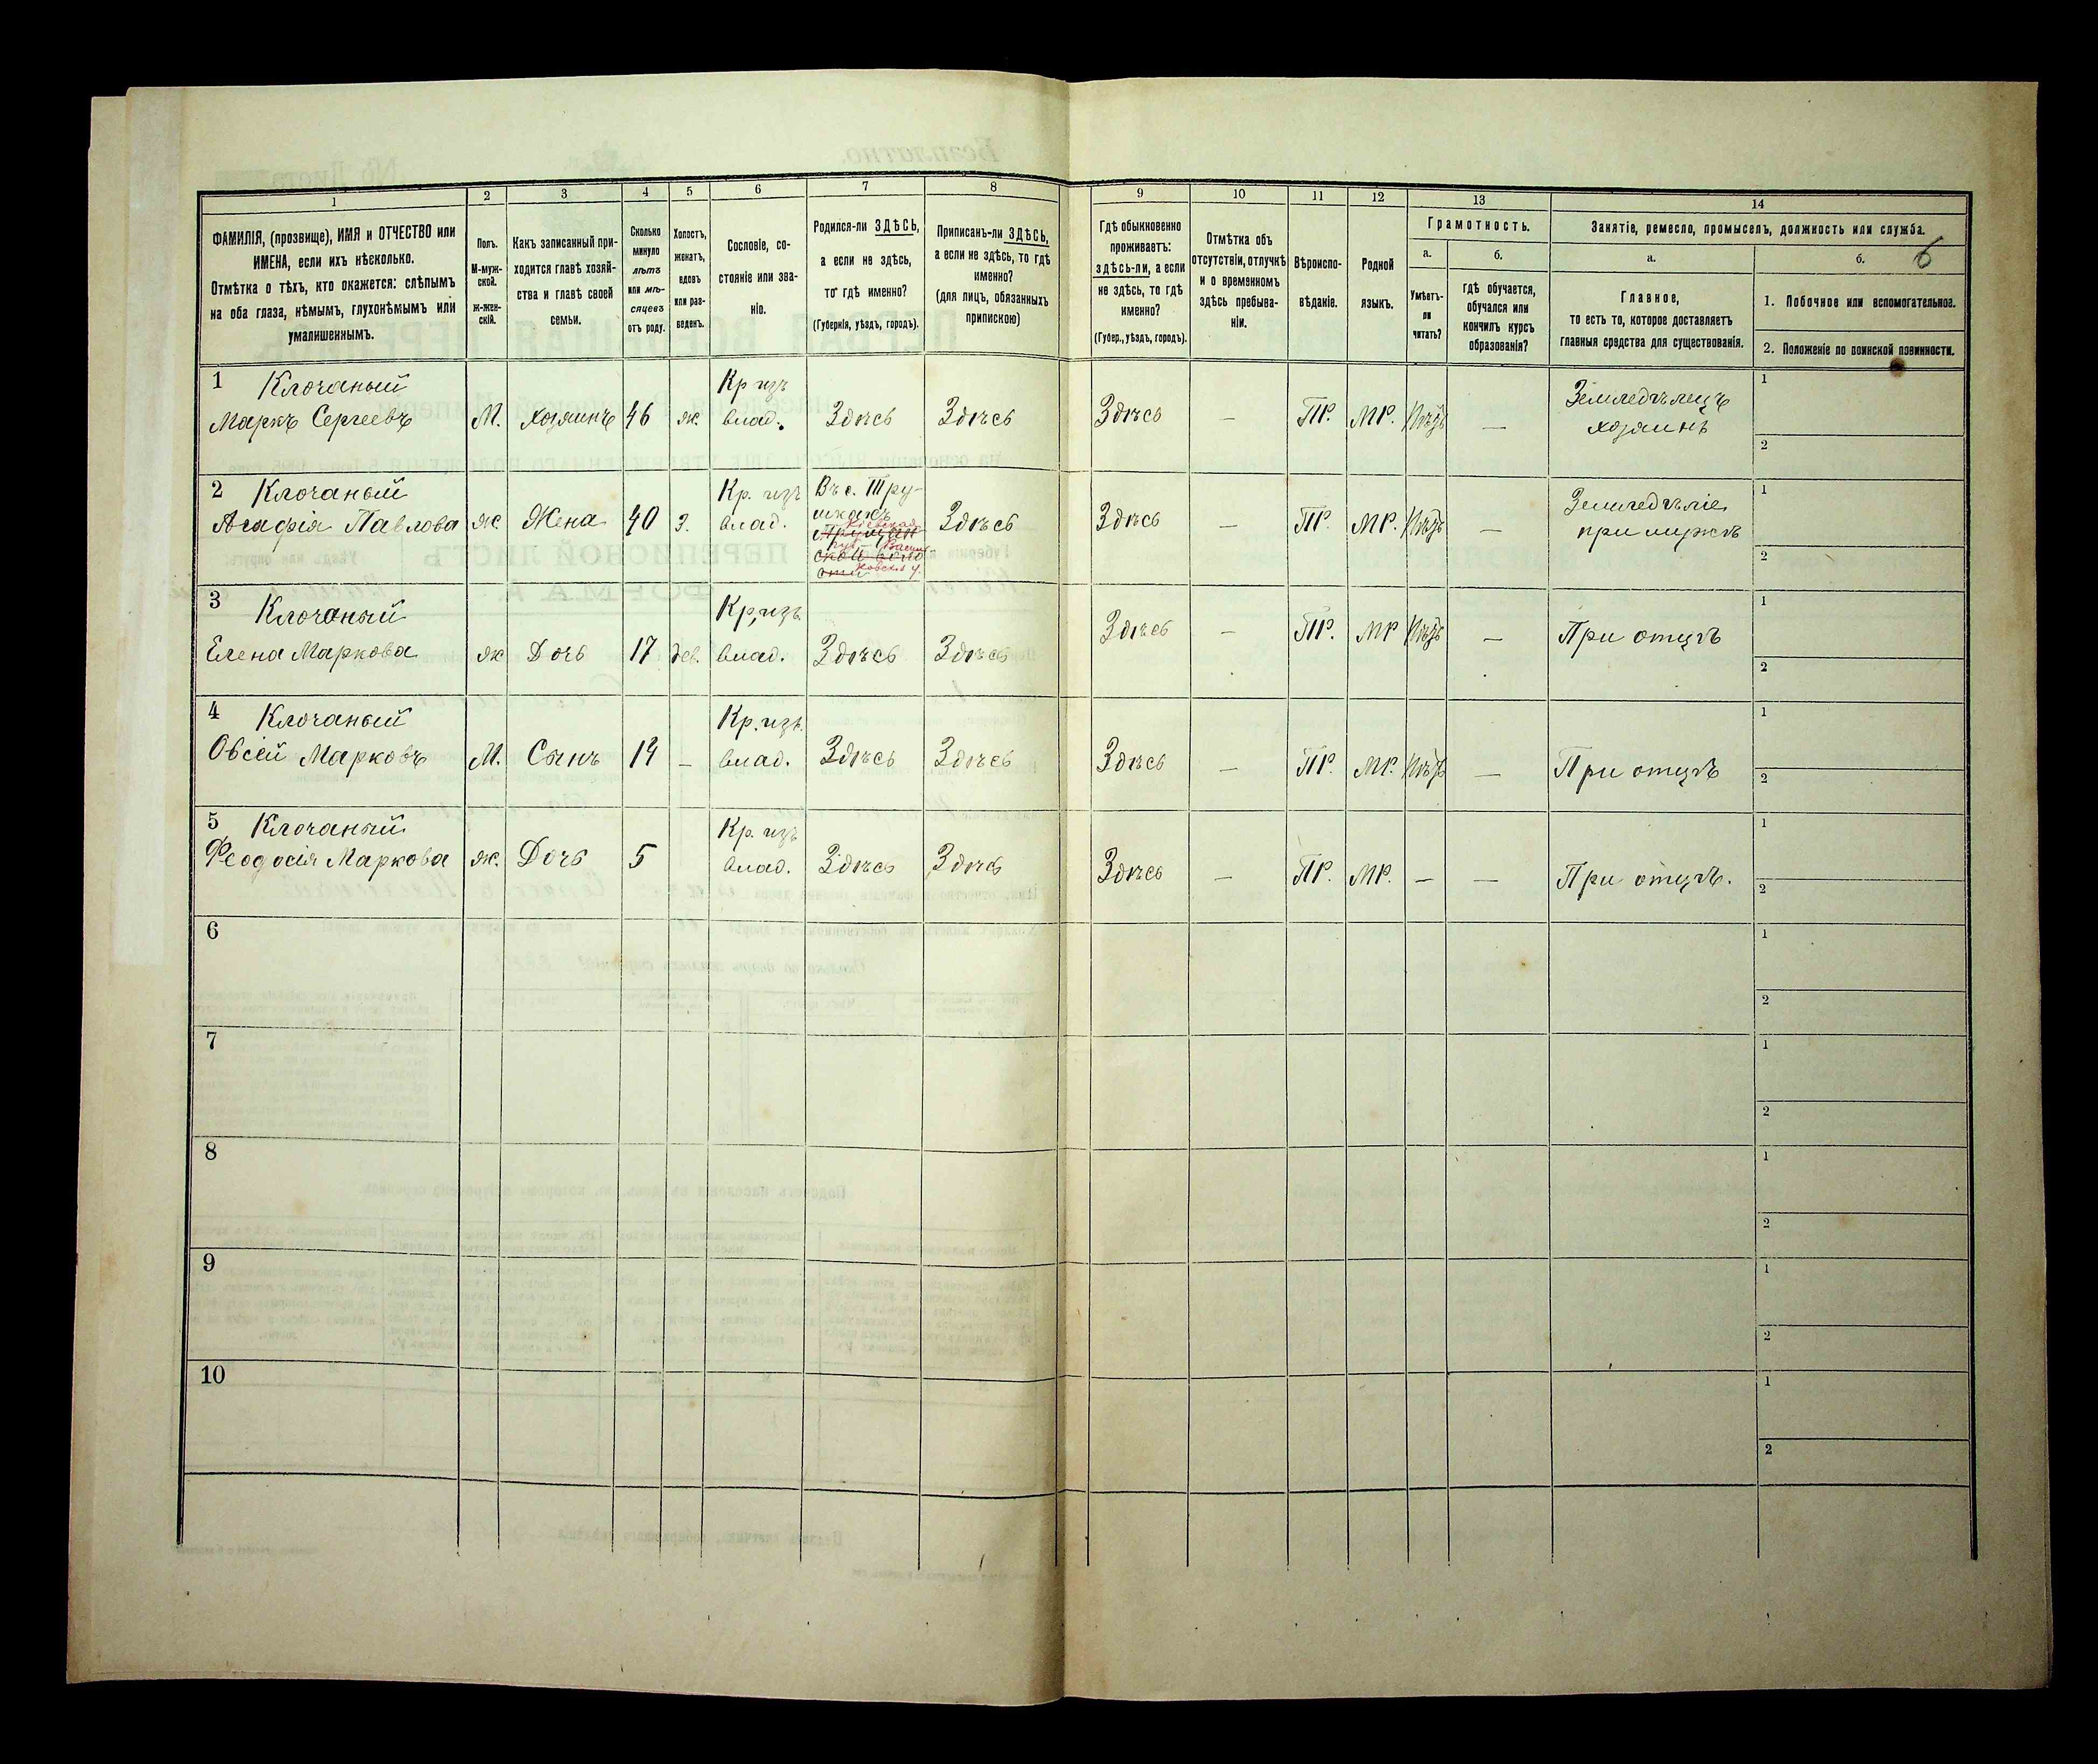 1
2
3
4
5
6
7
8
9
10
11
12
13
14
ФАМИЛІЯ, (прозвище), ИМЯ и ОТЧЕСТВО или
ИМЕНА, если ихъ нѣсколько.
Отмѣтка о тѣхъ, кто окажется: слѣпымъ
на оба глаза, нѣмымъ, глухонѣмымъ или
умалишеннымъ.
Полъ.
М-муж-
ской.
Ж-жен-
скій.
Какъ записанный при-
ходится главѣ хозяй-
ства и главѣ своей
семьи.
Сколько
минуло
лѣтъ
или мѣ-
сяцевъ
отъ роду.
Холостъ,
женатъ,
вдовъ
или раз-
веденъ.
Сословіе, со-
стояніе или зва-
ніе.
Родился-ли ЗДѢСЬ,
а если не здѣсь,
то гдѣ именно?
(Губернія, уѣздъ, городъ).
Приписанъ-ли ЗДѢСЬ,
а если не здѣсь, то гдѣ
именно?
(для лицъ, обязанныхъ
припискою)
Гдѣ обыкновенно
проживаетъ:
здѣсь-ли, а если
не здѣсь, то гдѣ
именно?
(Губер., уѣздъ, городъ).
Отмѣтка объ
отсутствіи, отлучкѣ
и о временномъ
здѣсь пребыва-
ніи.
Вѣроиспо-
вѣданіе.
Родной
языкъ.
Грамотность.
а.
Умѣетъ-
ли
читать?
б.
гдѣ обучается,
обучался или
кончилъ курсъ
образованія?
Занятіе, ремесло, промыселъ, должность или служба.
а.
Главное,
то есть то, которое доставляетъ
главныя средства для существованія.
б.
6
1. Побочное или вспомогательное.
2. Положеніе по воинской повинности.
1 Клочаный
Маркъ Сергеевъ
М.
хозяинъ
46
ж.
Кр изъ
влад.
Здѣсь
Здѣсь
Здѣсь
—
ПР.
МР.
—
Земледѣлецъ
хозяинъ
1
2
2 Клочаный
Агафія Павлова
ж.
Жена
40
З.
Кр. изъ
влад.
Въ с. Тру-
шкахъ
Кіевская
губ. Васил
ковскаго у.
Здѣсь
Здѣсь
—
ПР.
МР.
—
Земледѣліе
при мужѣ
1
2
3 Клочаный
Елена Маркова
ж
Дочь
17
дев.
Кр, изъ
влад.
Здѣсь
Здѣсь
Здѣсь
—
ПР.
МР
—
При отцѣ
1
2
4 Клочаный
Овсей Марковъ
М.
Сынъ
14
—
Кр. изъ
влад.
Здѣсь
Здѣсь
Здѣсь
—
ПР.
МР.
—
При отцѣ
1
2
5 Клочаный
Феодосія Маркова
ж.
Дочь
5
Кр. изъ
влад.
Здѣсь
Здѣсь
Здѣсь
—
ПР.
МР.
—
—
При отцѣ.
1
2
6
1
2
7
1
2
8
1
2
9
1
2
10
1
2